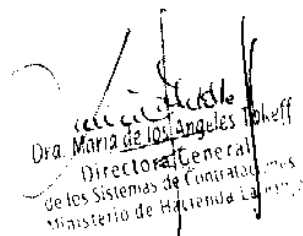 Dra. María de los Angeles Tokeff
Directora General
de los Sistemas de Contrataciones
Ministerio de Hacienda